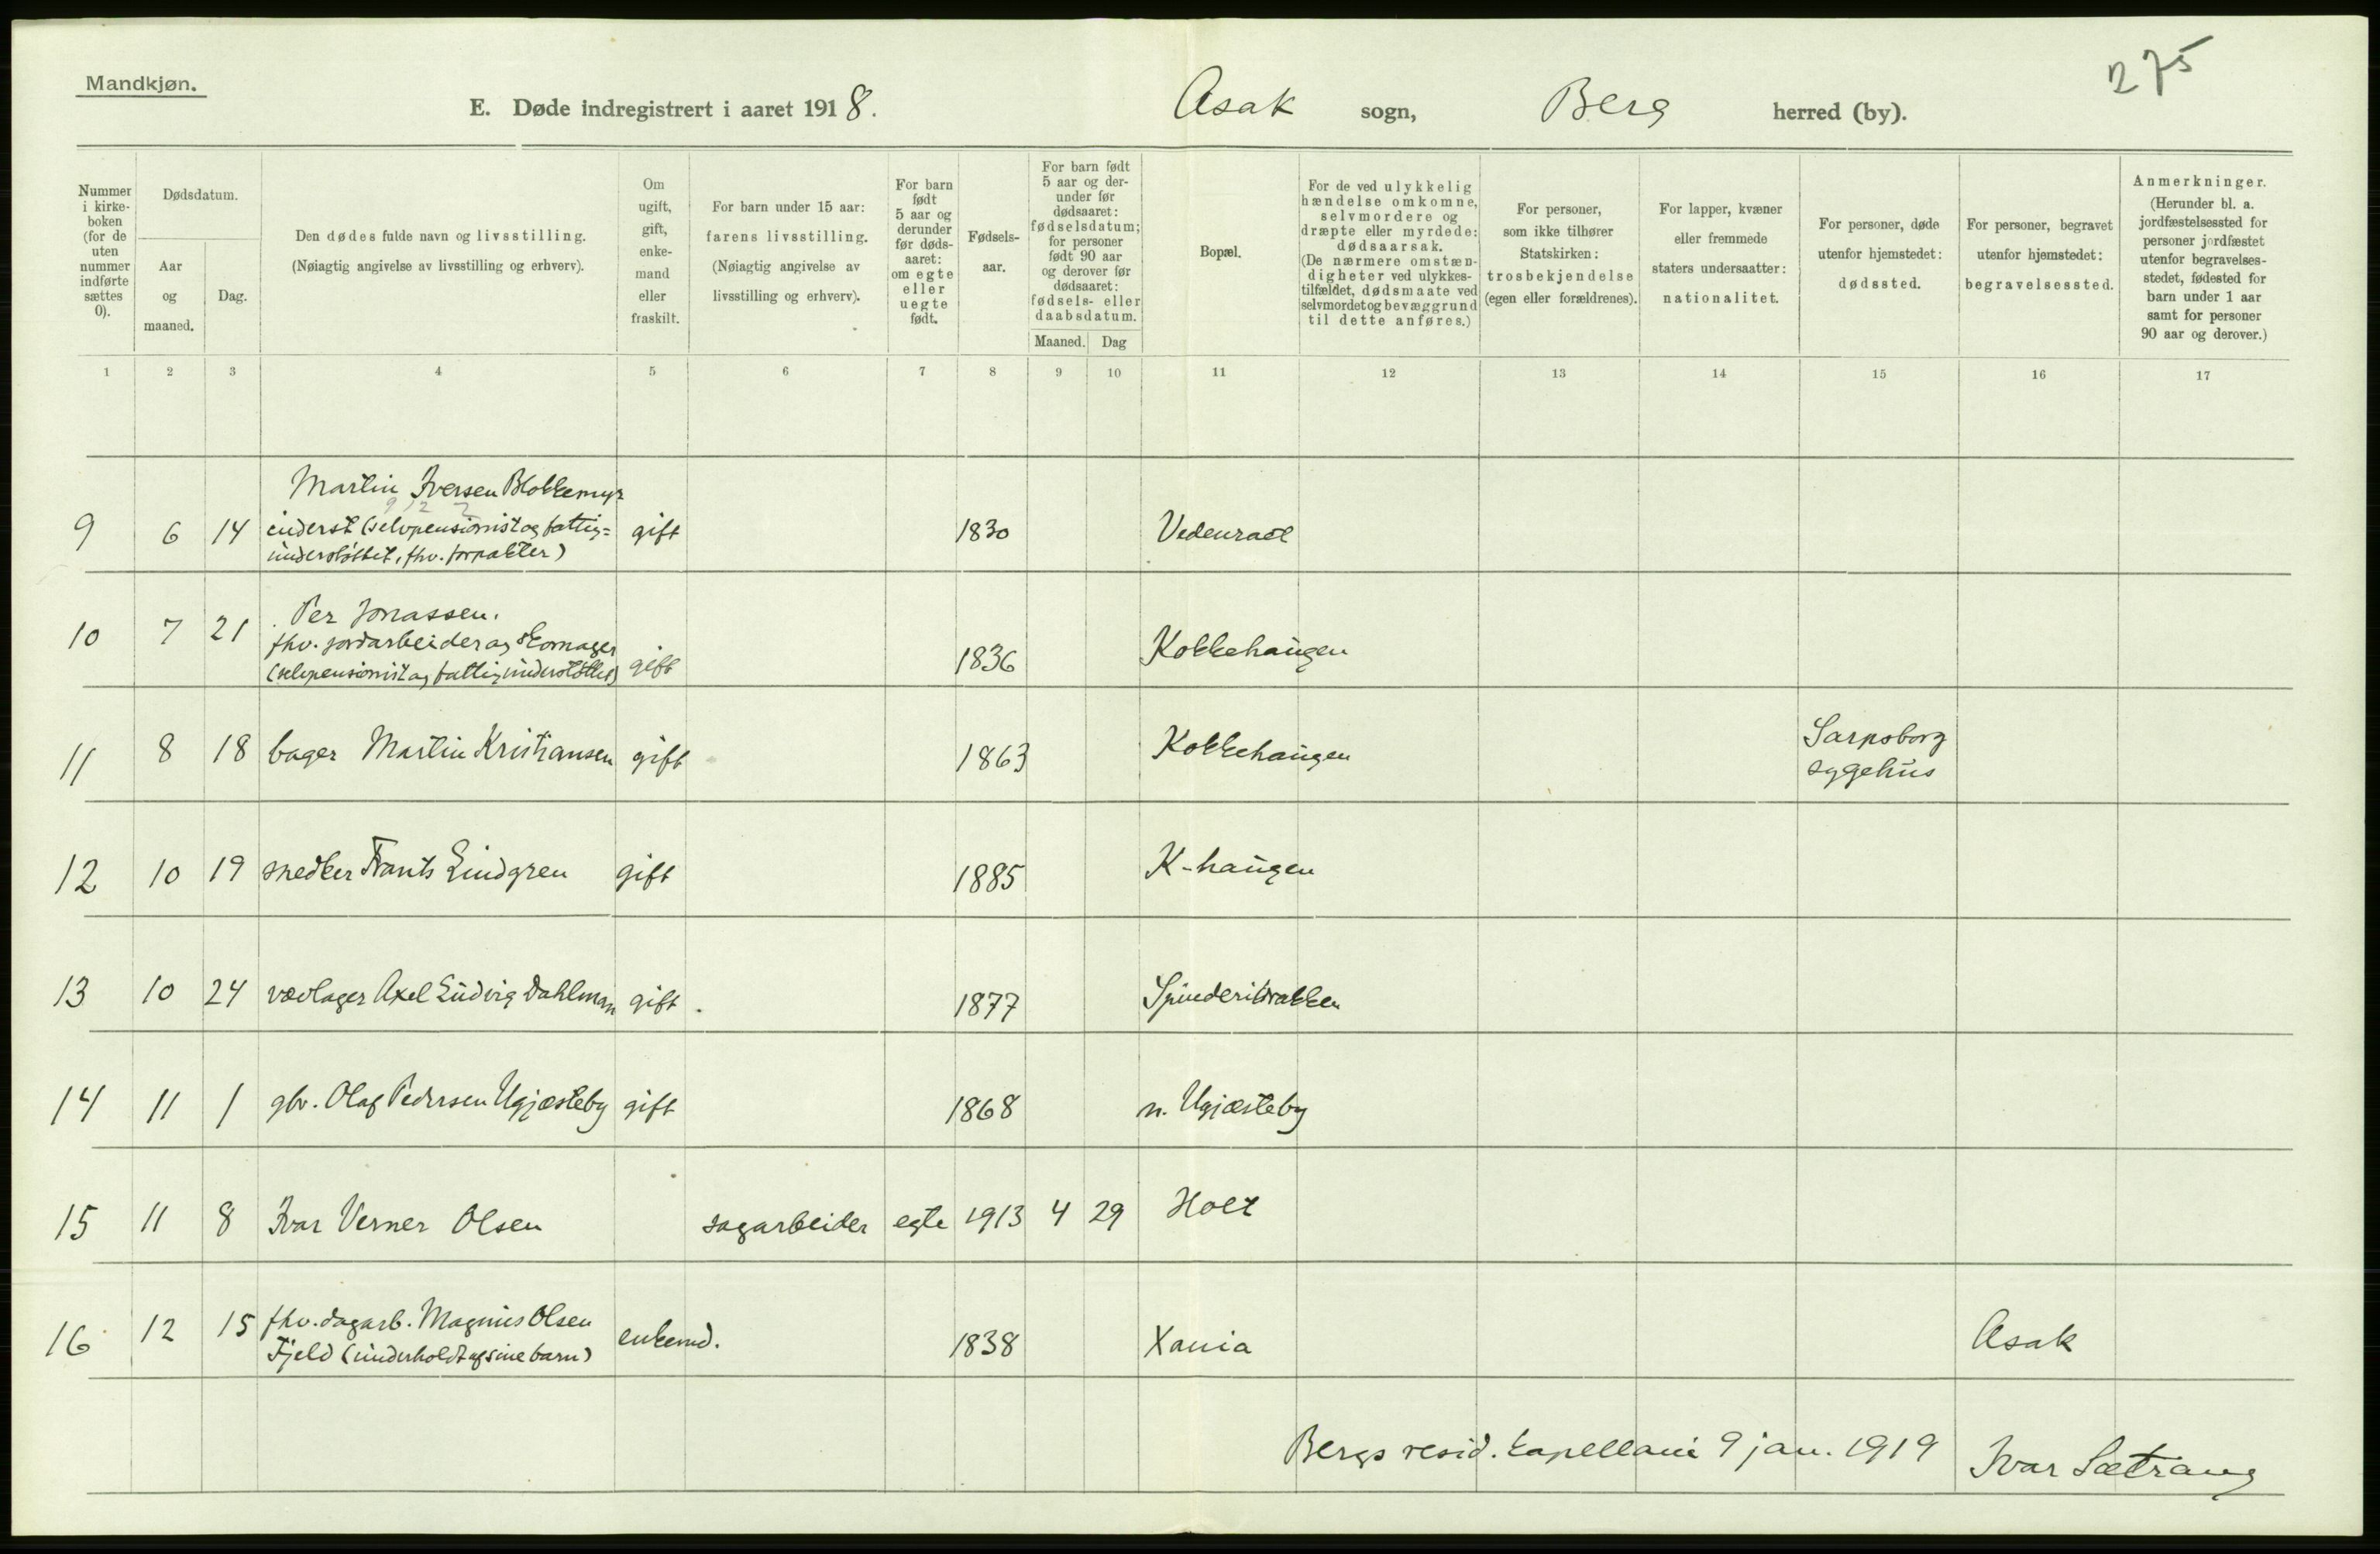 Mandkjøn.
275
E. Døde indregistrert i aaret 1918. Asak sogn, Berg herred (by).
Nummer i kirke- boken (for de uten nummer indførte sættes 0).
Dødsdatum.
Aar og maaned.
Dag.
Den dødes fulde navn og livsstilling.
(Nøiagtig angivelse av livsstilling og erhverv).
Om ugift, gift, enke- mand eller fraskilt.
For barn under 15 aar: farens livsstilling. (Nøiagtig angivelse av livsstilling og erhverv).
For barn født 5 aar og derunder før døds- aaret: om egte eller uegte født.
Fødsels- aar.
For barn født 5 aar og der- under før dødsaaret: fødselsdatum; for personer født 90 aar og derover før dødsaaret: fødsels- eller daabsdatum.
Maaned. Dag
Bopæl.
For de ved ulykkelig hændelse omkomne, selvmordere og dræpte eller myrdede: dødsaarsak. (De nærmere omstæn- digheter ved ulykkes- tilfældet, dødsmaate ved selvmordet og bevæggrund til dette anføres.)
For personer, som ikke tilhører Statskirken: trosbekjendelse (egen eller forældrenes).
For lapper, kvæner eller fremmede staters undersaatter: nationalitet.
For personer, døde utenfor hjemstedet: dødssted.
For personer, begravet utenfor hjemstedet: begravelsessted.
Anmerkninger. (Herunder bl. a. jordfæstelsessted for personer jordfæstet utenfor begravelses- stedet, fødested for barn under 1 aar samt for personer 90 aar og derover.)
1 2 3 4 5 6 7 8 9 10 11 12 13 14 15 16 17
Martin Iversen Blokkemyr
9 6 14 inderst (selvpensionist og fattig= gift 1830 Vedenract
understøttet, fhv. forpakter)
10 7 21 Per Jonassen.
fhv. jordarbeider og skomager
(selvpensionist og fattigunderstøttet) gift 1836 Kokkehaugen
11 8 18 bager Martin Kristiansen gift 1863 Kokkehaugen Sarpsborg
sygehus
12 10 19 snedker Frants Lindgren gift 1885 K-haugen
13 10 24 vævlager Axel Ludvig Dahlman gift 1877 Spinderibrakken
14 11 1 gbr. Olaf Pedersen Ugjæsteby gift 1868 n. Ugjæsteby
15 11 8 Ivar Verner Olsen sagarbeider egte 1913 4 29 Holt
16 12 15 fhv. dagarb. Magnus Olsen enkemd. 1838 Xania Asak
Fjeld (underholdt af sine barn)
Bergs resid. kapellani 9 jan. 1919 Ivar Sætrang